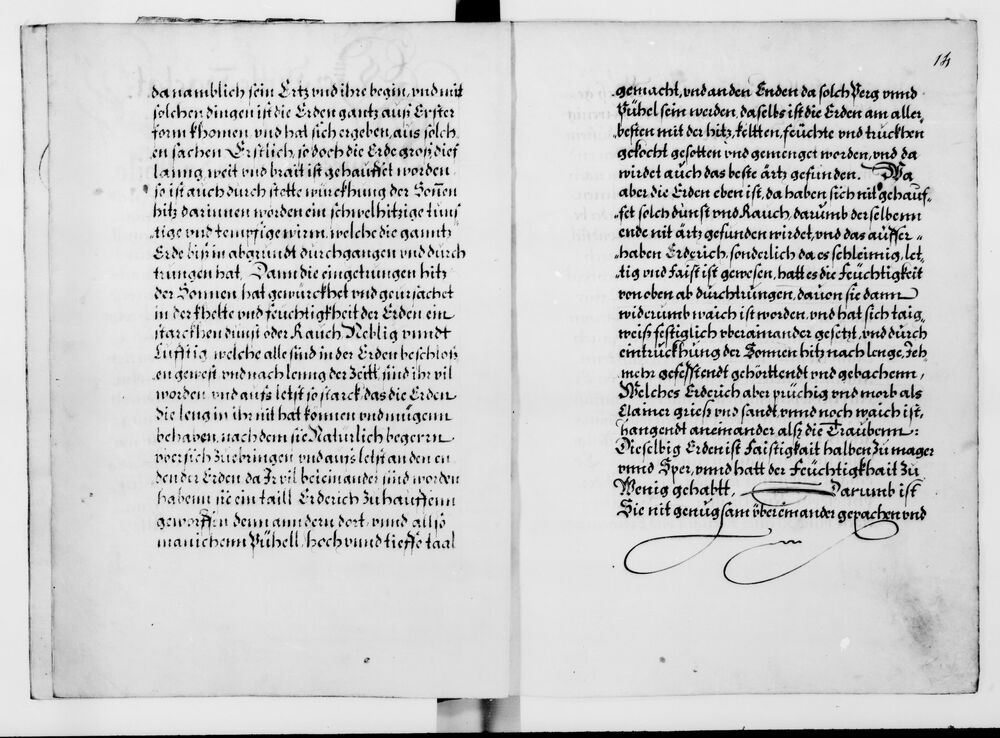 da namblich sein Ertz vnd ihre begin, vnd mit
solchen dingen ist die Erden gantz auß Erster
form khomen vnd hat sich ergeben, aus solch
en sachen Erstlich, so doch die Erde groß, dief
lanng, weit vnd brait ist gehauffet worden
so ist auch durch stette würckhung der Soñen
hitz darinnen worden ein schwelhitzige tunf
tige vnd tempfige wirm, welche die ganntz
Erde biß in abgrundt durchgangen vnd durch
trungen hat, Dann die eingetrungen hitz
der Sonnen hat gewürckhet vnd geursachet
in der khelte vnd feuchtigkheit der Erden ein
starckhen dunst oder Rauch Neblig vnndt
Lufftig, welche alle sind in der Erden beschloß
en gewest vnd nach lenng der Zeitt, sind ihr vil
worden vnd aufs letst so starck, das die Erden
die leng in ihr nit hat können vnd mügenn
behaben, nach dem sie Natürlich begernn
vbersich zuebringen vnd aufs letst an den en
den der Erden da Ir vil beieinander sind worden
habenn sie ein taill Erderich zu hauffenn
geworffen denn ann dern dort, vnnd allso
manichenn Pühell, hoch vnnd tieffe taal
14
gemacht, vnd an den Enden da solch Perg vnnd
Pühel sein werden, daselbs ist die Erden am aller
besten mit der hitz, keltten, feüchte vnd trückhen
gekocht gesotten vnd gemenget worden, vnd da
wirdet auch das beste ärtz gefunden. Wa
aber die Erden eben ist, da haben sich nit gehauf„
fet solch dünst vnd Rauch, darumb derselbenn
ende nit ärtz gefunden wirdet, vnd das auffer„
haben Erderich, sonderlich da es schleimig, let„
tig vnd faist ist gewesen, hatt es die Feüchtigkeit
von oben ab durchtrungen, dauon sie dann
widerumb waich ist worden, vnd hat sich taig„
weiß festiglich vberainander gesetzt, vnd durch
eintrückhung der Sonnen hitz nach lenge, Jeh
mehr gefesstendt gehörttendt vnd gebachenn,
Welches Erderich aber prüchig vnd morb als
Clainer grieß vnd sandt, vnnd noch waich ist,
hangendt aneinander alß die Traubenn:
Dieselbig Erden ist Faistigkait halben zu mager
vnnd Sper, vnnd hatt der Feüchtigkhait zu
Wenig gehabtt, Darumb ist
Sie nit genugsam übereinander gepachen vnd